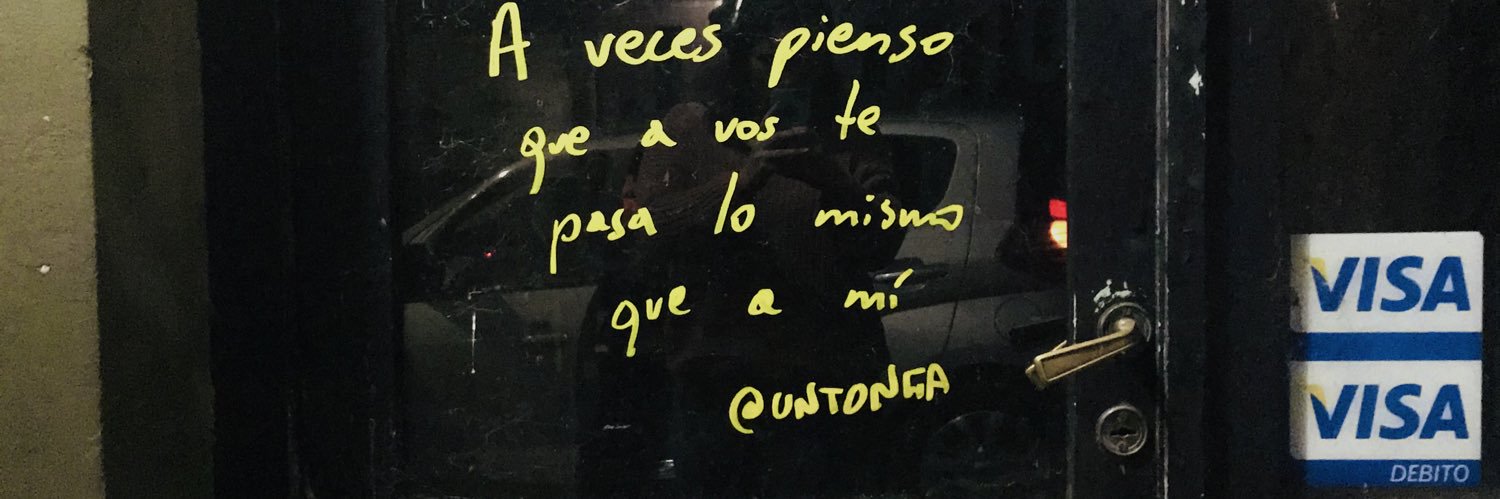 A veces pienso
que a vos te
pasa lo mismo
que a mí
@UNTONGA
VISA
VISA
DEBITO